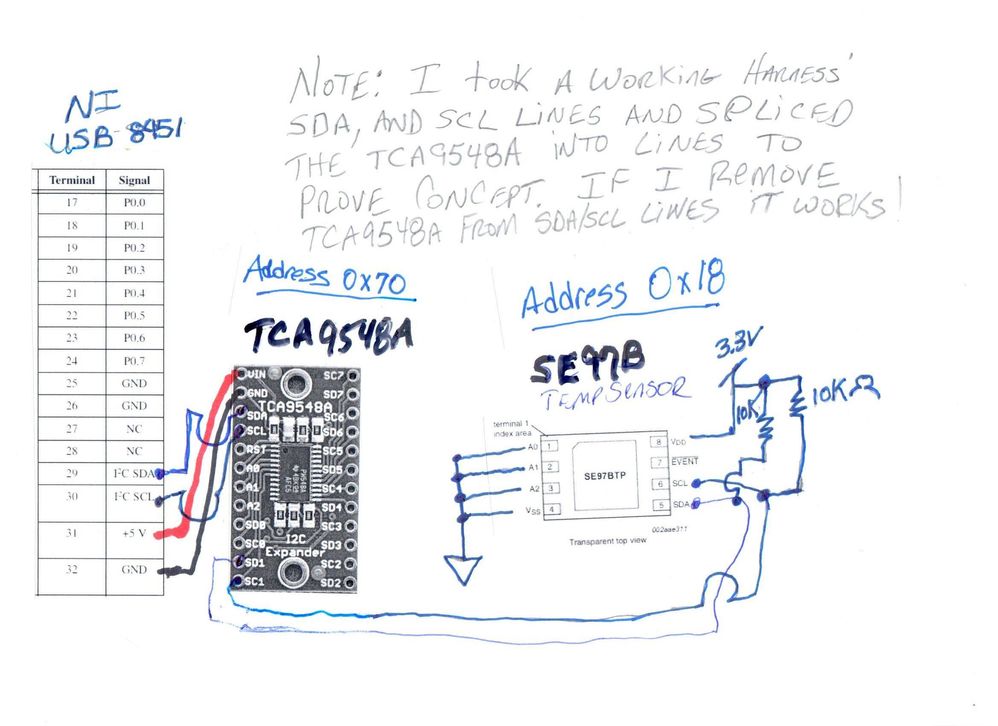 NOTE: I took A WORKING HARNESS'
SDA, AND SCL LINES AND SPLICED
THE TCA9548A INTO LINES TO
PROVE CONCEPT. IF I REMOVE
TCA9548A FROM SDA/SCL LINES IT WORKS!
NI
USB-8451
Terminal Signal
17 P0.0
18 P0.1
19 P0.2
20 P0.3
21 P0.4
22 P0.5
23 P0.6
24 P0.7
25 GND
26 GND
27 NC
28 NC
29 I²C SDA
30 I²C SCL
31 +5 V
32 GND
Address 0x70
TCA9548A
VIN SC7
GND SD7
TCA9548A
SDA SC6
SCL SD6
RST SC5
A0 SD5
A1 SC4
A2 SD4
SD0 SC3
SC0 SD3
I2C
Expander
SD1 SC2
SC1 SD2
Address 0x18
SE97B
TEMP SENSOR
3.3V
10K
10KΩ
terminal 1
index area
A0 1 8 VDD
A1 2 7 EVENT
A2 3 6 SCL
VSS 4 5 SDA
SE97BTP
002aae311
Transparent top view